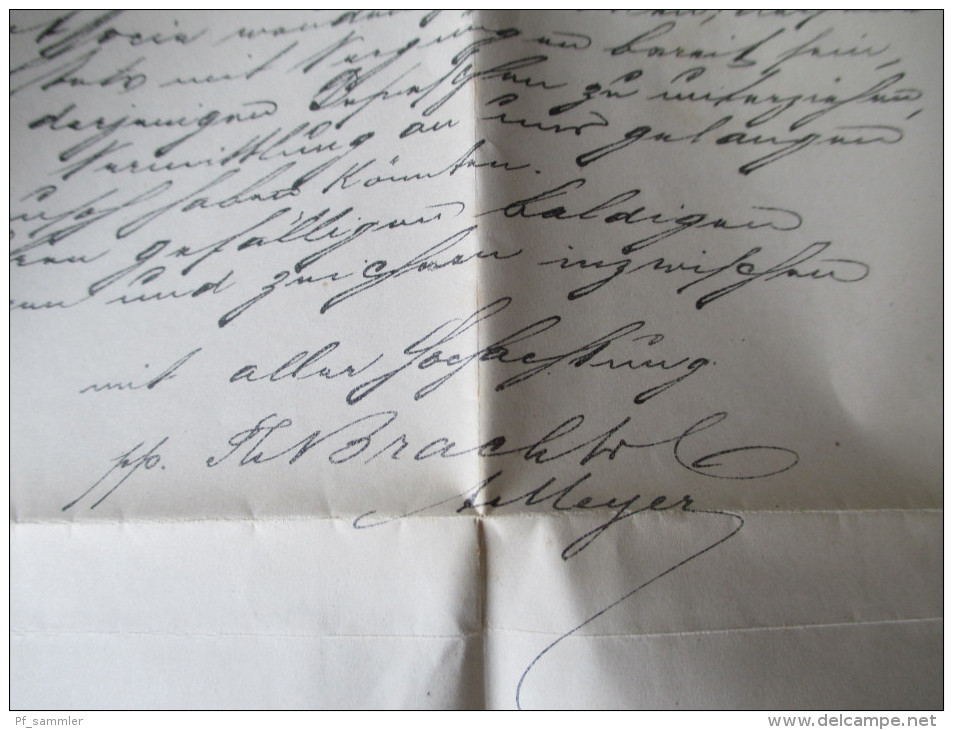 werden
stets mit Vergnügen bereit sein,
derjenigen Depeschen zu unterziehen,
Vermittlung an uns gelangen
haben könnten.
gefälligen baldigen
und zeichnen inzwischen
mit aller Hochachtung
pp. Bracht &
Meyer
Pf_sammler
www.delcampe.net